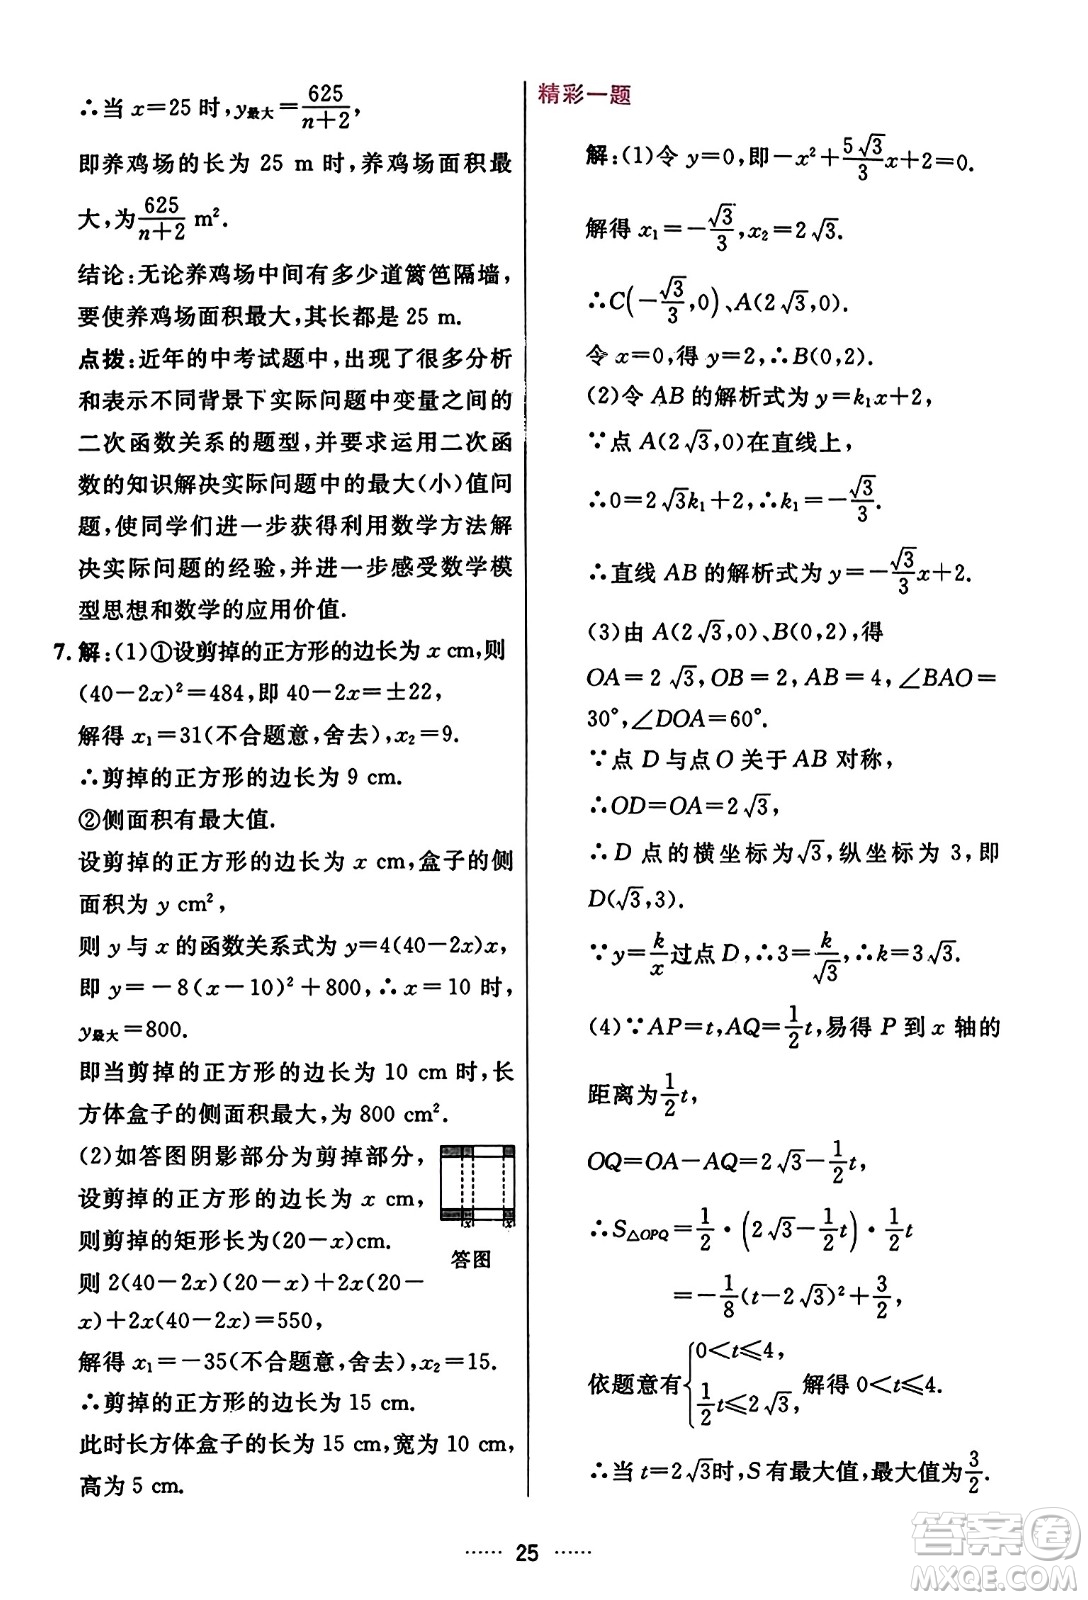 ∴当 x=25 时,y最大=625/(n+2),
即养鸡场的长为 25 m 时,养鸡场面积最
大,为625/(n+2) m².
结论:无论养鸡场中间有多少道篱笆隔墙,
要使养鸡场面积最大,其长都是 25 m.
点拨:近年的中考试题中,出现了很多分析
和表示不同背景下实际问题中变量之间的
二次函数关系的题型,并要求运用二次函
数的知识解决实际问题中的最大(小)值问
题,使同学们进一步获得利用数学方法解
决实际问题的经验,并进一步感受数学模
型思想和数学的应用价值.
7.解:(1)①设剪掉的正方形的边长为 x cm,则
(40-2x)²=484,即 40-2x=±22,
解得 x₁=31(不合题意,舍去),x₂=9.
∴剪掉的正方形的边长为 9 cm.
②侧面积有最大值.
设剪掉的正方形的边长为 x cm,盒子的侧
面积为 y cm²,
则 y 与 x 的函数关系式为 y=4(40-2x)x,
即 y=-8(x-10)²+800,∴x=10 时,
y最大=800.
即当剪掉的正方形的边长为 10 cm 时,长
方体盒子的侧面积最大,为 800 cm².
(2)如答图阴影部分为剪掉部分,
设剪掉的正方形的边长为 x cm,
则剪掉的矩形长为(20-x)cm.
x x
答图
则 2(40-2x)(20-x)+2x(20-
x)+2x(40-2x)=550,
解得 x₁=-35(不合题意,舍去),x₂=15.
∴剪掉的正方形的边长为 15 cm.
此时长方体盒子的长为 15 cm,宽为 10 cm,
高为 5 cm.
精彩一题
解:(1)令 y=0,即-x²+(5√3/3)x+2=0.
解得 x₁=-√3/3,x₂=2√3.
∴C(-√3/3,0)、A(2√3,0).
令 x=0,得 y=2,∴B(0,2).
(2)令 AB 的解析式为 y=k₁x+2,
∵点 A(2√3,0)在直线上,
∴0=2√3k₁+2,∴k₁=-√3/3.
∴直线 AB 的解析式为 y=-(√3/3)x+2.
(3)由 A(2√3,0)、B(0,2),得
OA=2√3,OB=2,AB=4,∠BAO=
30°,∠DOA=60°.
∵点 D 与点 O 关于 AB 对称,
∴OD=OA=2√3,
∴D 点的横坐标为√3,纵坐标为 3,即
D(√3,3).
∵y=k/x过点 D,∴3=k/√3,∴k=3√3.
(4)∵AP=t,AQ=(1/2)t,易得 P 到 x 轴的
距离为(1/2)t,
OQ=OA-AQ=2√3-(1/2)t,
∴S△OPQ=1/2·(2√3-(1/2)t)·(1/2)t
=-(1/8)(t-2√3)²+3/2,
依题意有{0<t≤4, (1/2)t≤2√3, 解得 0<t≤4.
∴当 t=2√3时,S 有最大值,最大值为3/2.
25
答案圈
MXQE.COM